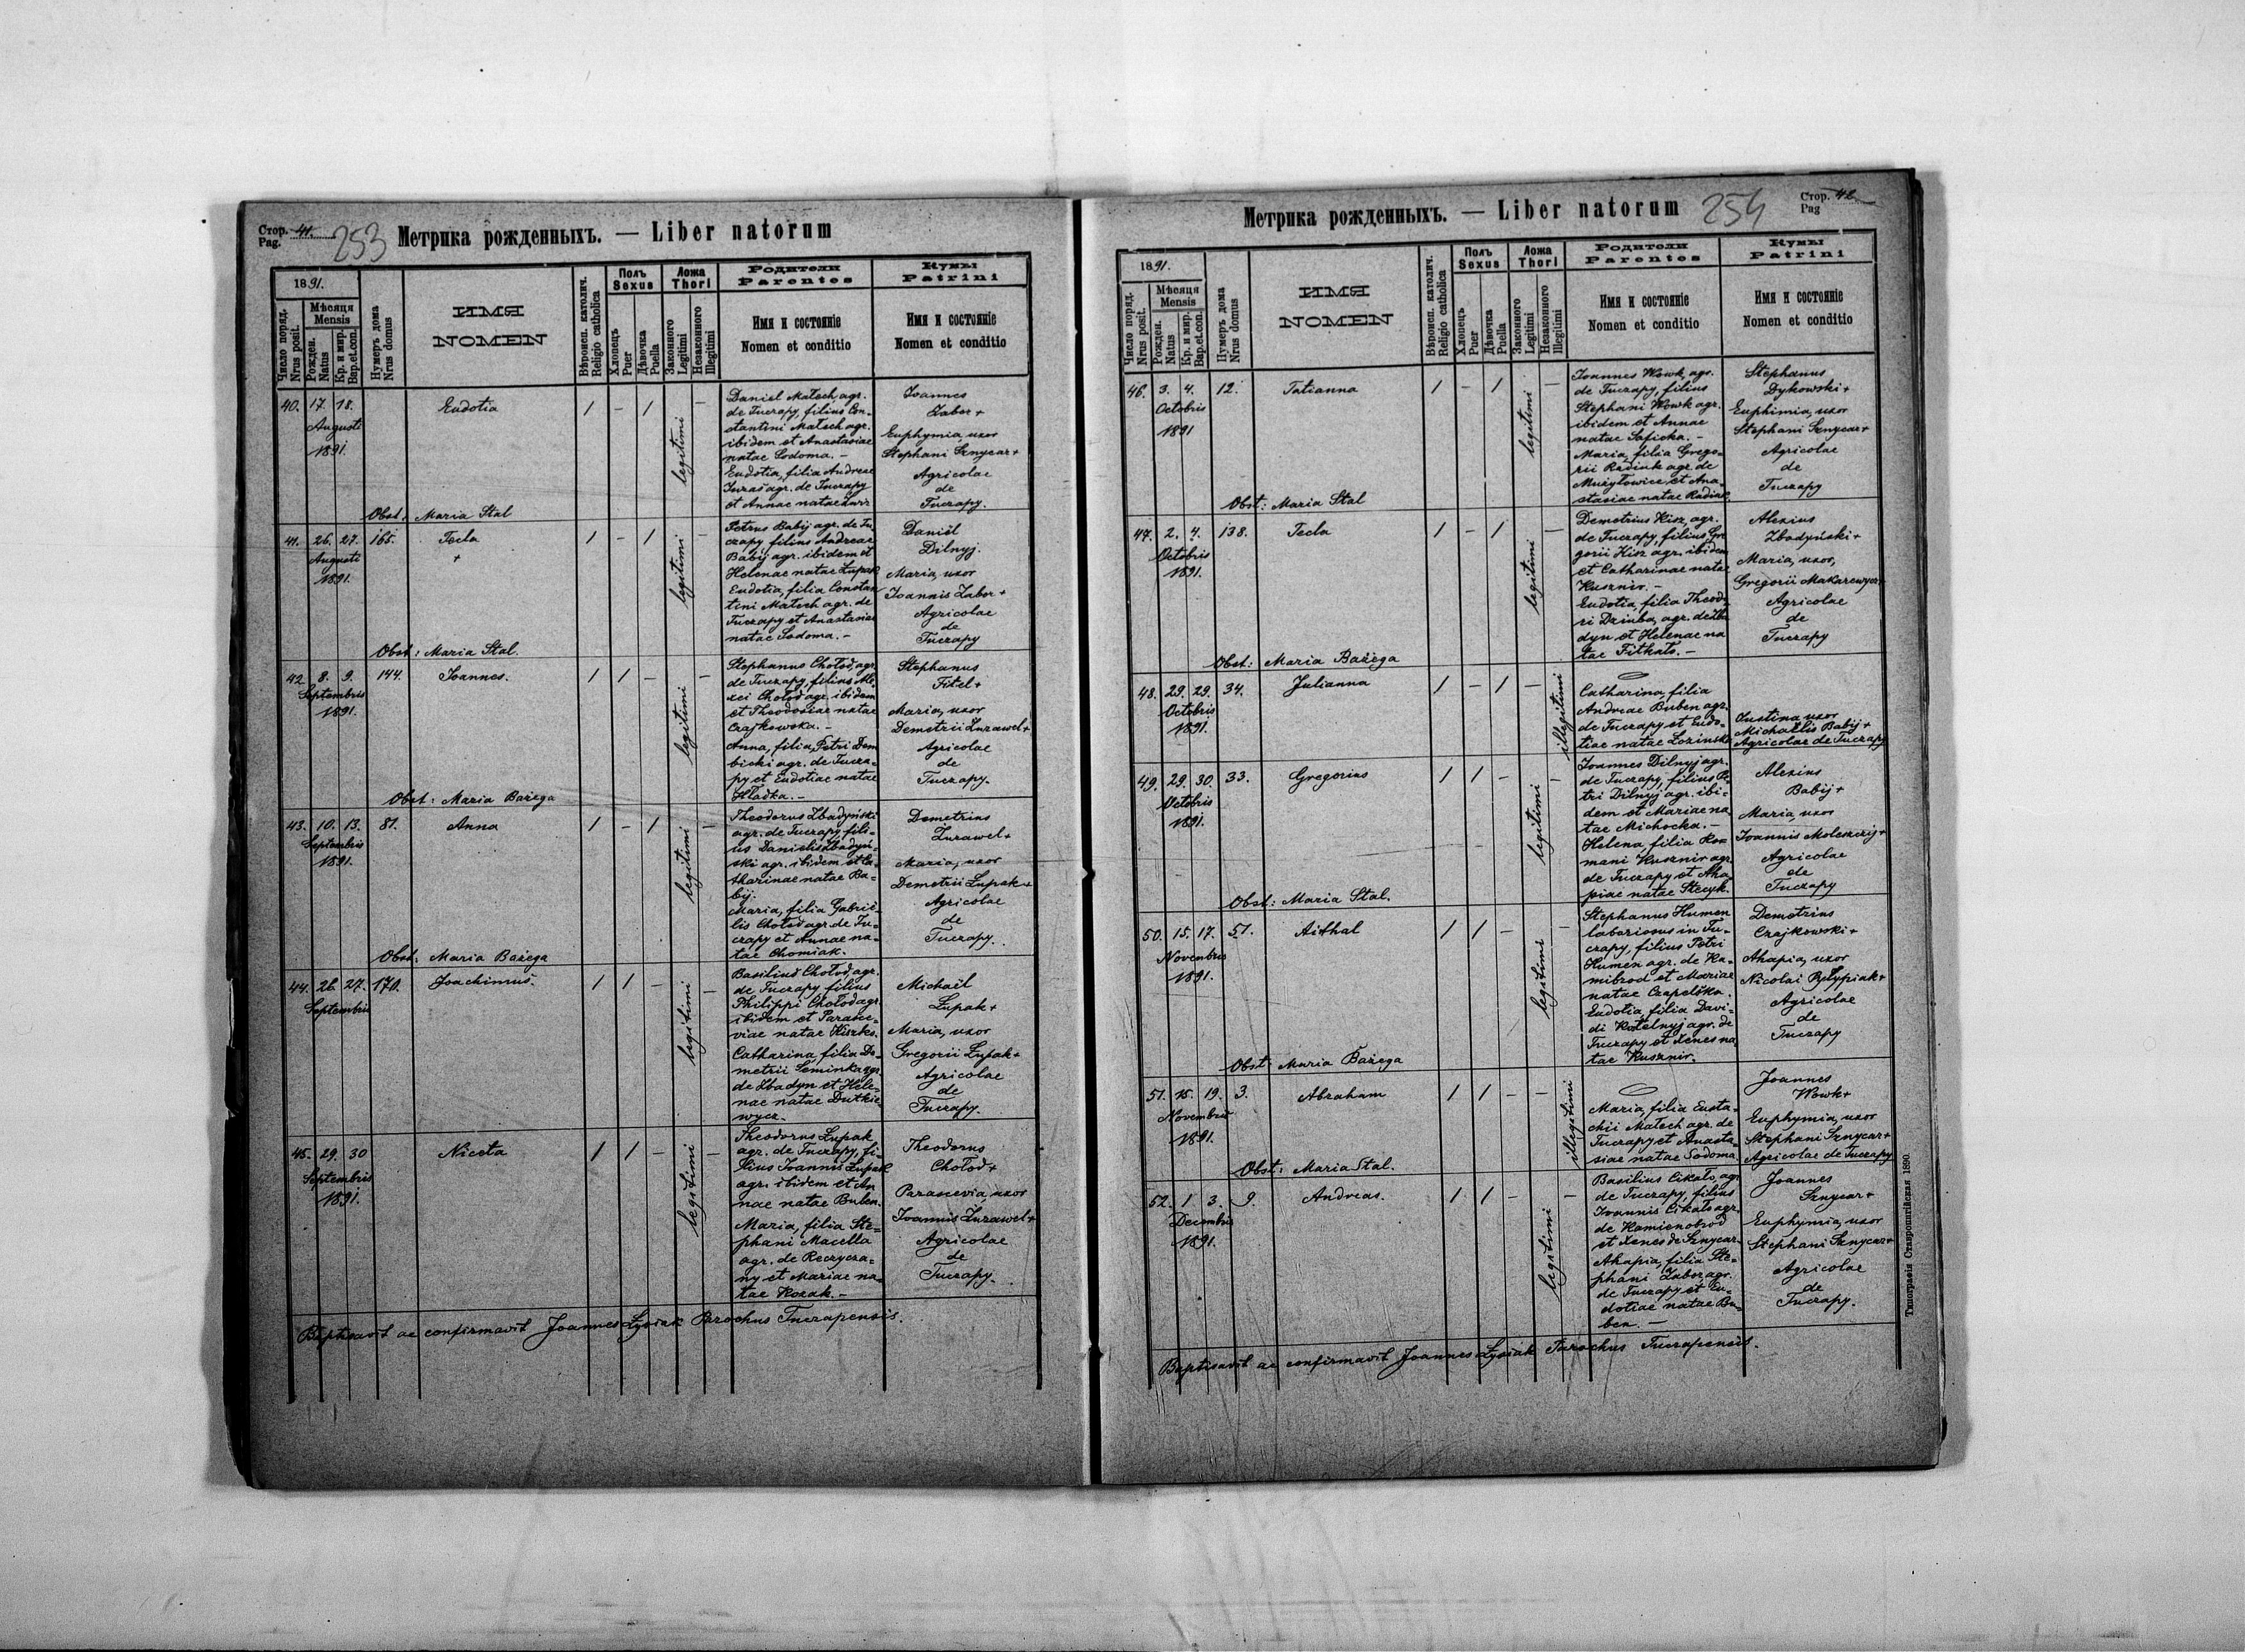 Стор. 41.
Pag.
253
Метрика рожденныхъ. — Liber natorum
1891.
Число поряд.
Nrus posit.
Мѣсяця
Mensis
Рожден.
Natus
Кр. и мир.
Bap. et. con.
Нумеръ дома
Nrus domus
ИМЯ
NOMEN
Вѣроисп. католич.
Religio catholica
Полъ
Sexus
Хлопецъ
Puer
Дѣвочка
Puella
Ложа
Thori
Законного
Legitimi
Незаконного
Illegitimi
Родители
Parentes
Имя и состоянiе
Nomen et conditio
Кумы
Patrini
Имя и состоянiе
Nomen et conditio
40. 17. 18.
Augusti
1891.
Eudotia
1 – 1 –
legitimi
Daniel Matech agr.
de Tuczapy, filius Con-
stantini Matech agr.
ibidem et Anastasiae
natae Sodoma. –
Eudotia, filia Andreae
agr. de Tuczapy
et Annae natae
Joannes
Zabor +
Euphymia, uxor
Stephani Sznycar +
Agricolae
de
Tuczapy.
Obst.: Maria Stal
41. 26. 27. 165.
Augusti
1891.
Tecla
+
1 – 1 –
legitimi
Petrus Babij agr. de Tu-
czapy filius Andreae
Babij agr. ibidem et
Helenae natae Łupak
Eudotia, filia Constan
tini Matech agr. de
Tuczapy et Anastasiae
natae Sodoma. –
Daniel
Dilnyj.
Maria, uxor
Joannis Zabor +
Agricolae
de
Tuczapy
Obst: Maria Stal.
42 8. 9. 144.
Septembris
1891.
Joannes.
1 1 – –
legitimi
Stephanus Chołod, agr.
de Tuczapy, filius Ale
xei Chołod agr. ibidem
et Theodosiae natae
Czajkowska. –
Anna, filia Petri Dem
bicki agr. de Tucza-
py et Eudotiae natae
Hładka. –
Stephanus
Fitel +
Maria, uxor
Demetrii Żurawel +
Agricolae
de
Tuczapy.
Obst: Maria Bażega
43. 10. 13. 81.
Septembris
1891.
Anna
1 – 1 –
legitimi
Theodorus Zbadyński
agr. de Tuczapy, fili-
us Danielis Zbadyń-
ski agr. ibidem et Ca
tharinae natae Ba-
bij.
Maria, filia Gabrie-
lis Chołod agr. de Tu-
czapy et Annae na-
tae Chomiak.
Demetrius
Żurawel +
Maria, uxor
Demetrii Łupak +
Agricolae
de
Tuczapy.
Obst. Maria Bażega
44. 26. 27. 170.
Septembris
Joachimus.
1 1 – –
legitimi
Basilius Chołod, agr.
de Tuczapy filius
Philippi Chołod agr.
ibidem et Parasce-
viae natae Kiszko.
Catharina, filia De-
metrii Seminka agr.
de Zbadyn et Hele-
nae natae Dutkie-
wycz.
Michail
Łupak +
Maria, uxor
Gregorii Łupak +
Agricolae
de
Tuczapy.
45. 29. 30
Septembris
1891.
Niceta
1 1 – –
legitimi
Theodorus Łupak
agr. de Tuczapy, fi-
lius Joannis Łupak
agr. ibidem et An
nae natae Buben.
Maria, filia Ste-
phani Macella
agr. de Reczycza-
ny et Mariae na-
tae Kozak. –
Theodorus
Chołod +
Parascevia, uxor
Joannis Żurawel +
Agricolae
de
Tuczapy.
Baptisavit ac confirmavit Joannes Łysiak Parochus Tuczapensis.
Метрика рожденныхъ. — Liber natorum
254
Стор. 42
Pag
1891.
Число поряд.
Nrus posit.
Мѣсяця
Mensis
Рожден.
Natus
Кр. и мир.
Bap. et. con.
Нумеръ дома
Nrus domus
ИМЯ
NOMEN
Вѣроисп. католич.
Religio catholica
Полъ
Sexus
Хлопецъ
Puer
Дѣвочка
Puella
Ложа
Thori
Законного
Legitimi
Незаконного
Illegitimi
Родители
Parentes
Имя и состоянiе
Nomen et conditio
Кумы
Patrini
Имя и состоянiе
Nomen et conditio
46. 3. 4. 12.
Octobris
1891
Tatianna
1 – 1 –
legitimi
Joannes Wowk, agr.
de Tuczapy, filius
Stephani Wowk agr.
ibidem et Annae
natae Saficka. –
Maria, filia Grego-
rii Radiuk agr. de
Mużyłowice, et Ana-
stasiae natae Radiak
Stephanus
Dykowski +
Euphimia, uxor
Stephani Sznycar +
Agricolae
de
Tuczapy
Obst: Maria Stal
47. 2. 4. 138.
Octobris
1891.
Tecla
1 – 1 –
legitimi
Demetrius Kisz, agr.
de Tuczapy, filius Gre
gorii Kisz agr. ibidem
et Catharinae natae
Kusznir. –
Eudotia, filia Theodo-
ri Dziuba, agr. de Zba
dyn et Helenae na
tae Fitkało. –
Alexius
Zbadyński +
Maria, uxor,
Gregorii Makarewycz +
Agricolae
de
Tuczapy
Obst: Maria Bażega
48. 29. 29. 34.
Octobris
1891.
Julianna
1 – 1 –
illegitimi
Catharina, filia
Andreae Buben agr.
de Tuczapy et Eudo-
tiae natae Łozinska
Justina uxor
Michaëlis Babij +
Agricolae de Tuczapy
49. 29. 30. 33.
Octobris
1891.
Gregorius
1 1 – –
legitimi
Joannes Dilnyj agr.
de Tuczapy, filius Pe-
tri Dilnyj agr. ibi-
dem et Mariae na-
tae Michocka. –
Helena, filia Ro-
mani Kusznir agr
de Tuczapy et Aha
piae natae Stecyk.
Alexius
Babij +
Maria, uxor
Joannis Moleszczij +
Agricolae
de
Tuczapy
Obst: Maria Stal.
50. 15. 17. 57.
Novembris
1891.
Aithal
1 1 – –
legitimi
Stephanus Humen
laboriosus in Tu-
czapy, filius Petri
Humen agr. de Ka-
mibrod et Mariae
natae Czapelska.
Eudotia, filia Davi-
di Kotelnyj agr. de
Tuczapy et Xenes na
tae Kusznir.
Demetrius
Czajkowski +
Ahapia, uxor
Nicolai Pyłypiak +
Agricolae
de
Tuczapy
Obst: Maria Bażega
51. 15. 19. 3.
Novembris
1891.
Abraham
1 1 – –
illegitimi
Maria, filia Eusta-
chii Matech agr. de
Tuczapy et Anasta-
siae natae Sodoma.
Joannes
Wowk +
Euphymia, uxor
Stephani Sznycar +
Agricolae de Tuczapy
Obst: Maria Stal.
52. 1 3. 9.
Decembris
1891.
Andreas.
1 1 – –
legitimi
Basilius Cikało, agr
de Tuczapy, filius
Joannis Cikało agr.
de Kamienobrod
et Xenes de Sznycar.
Ahapia, filia Ste-
phani Zabor, agr.
de Tuczapy et Eu-
dotiae natae Bu-
ben. –
Joannes
Sznycar +
Euphymia, uxor
Stephani Sznycar +
Agricolae
de
Tuczapy.
Baptisavit ac confirmavit Joannes Łysiak Parochus Tuczapensis.
Типографiя Ставропигiйская 1890.